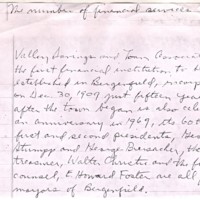 The number of financial service
Valley Savings and Loan Associa
the first financial institution to b
established in Bergenfield, incorp
on Dec. 30, 1909 just fifteen years
after the town began is also cele
an anniversary in 1969, its 60th
first and second presidents,
Stumpp and George
treasurer, Walter Christie and the fi
counsel, E. Howard Foster are all f
mayors of Bergenfield.